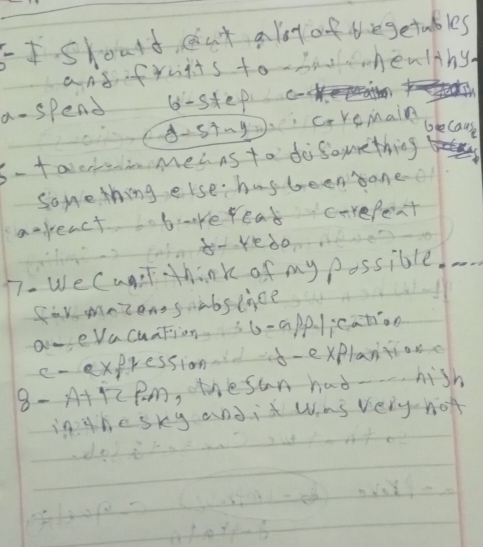 5- I should eat alot of vegetables
and fruits to ---- healthy.
a- spend b- step c-
d- stay c- remain
6- to ---- means to do something because
something else has been done
a- react b- retreat c- repeat
d- redo
7- We can't think of my possible ----
for mazens absence
a- evacuation b- application
c- expression d- explantion
8- At 12 P.m, the sun had ---- high
in the sky and it was very hot